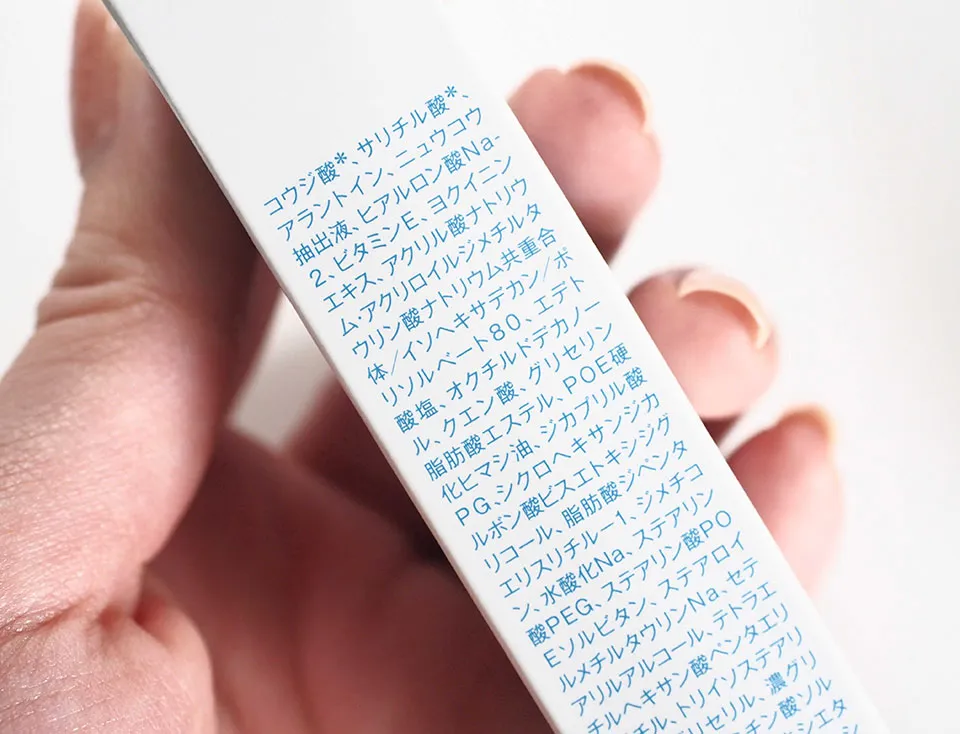 コウジ酸*、サリチル酸*、
アラントイン、ニュウコウ
抽出液、ヒアルロン酸Na-
2、ビタミンE、ヨクイニン
エキス、アクリル酸ナトリウ
ム・アクリロイルジメチルタ
ウリン酸ナトリウム共重合
体/イソヘキサデカン/ポ
リソルベート80、エデト
酸塩、オクチルドデカノー
ル、クエン酸、グリセリン
脂肪酸エステル、POE硬
化ヒマシ油、ジカプリル酸
PG、シクロヘキサンジカ
ルボン酸ビスエトキシジグ
リコール、脂肪酸ジペンタ
エリスリチルー1、ジメチコ
ン、水酸化Na、ステアリン
酸PEG、ステアリン酸PO
Eソルビタン、ステアロイ
ルメチルタウリンNa、セテ
アリルアルコール、テトラエ
チルヘキサン酸ペンタエリ
エル、トリイソステアリ
リセリル、濃グリ
チン酸ソル
シエタ